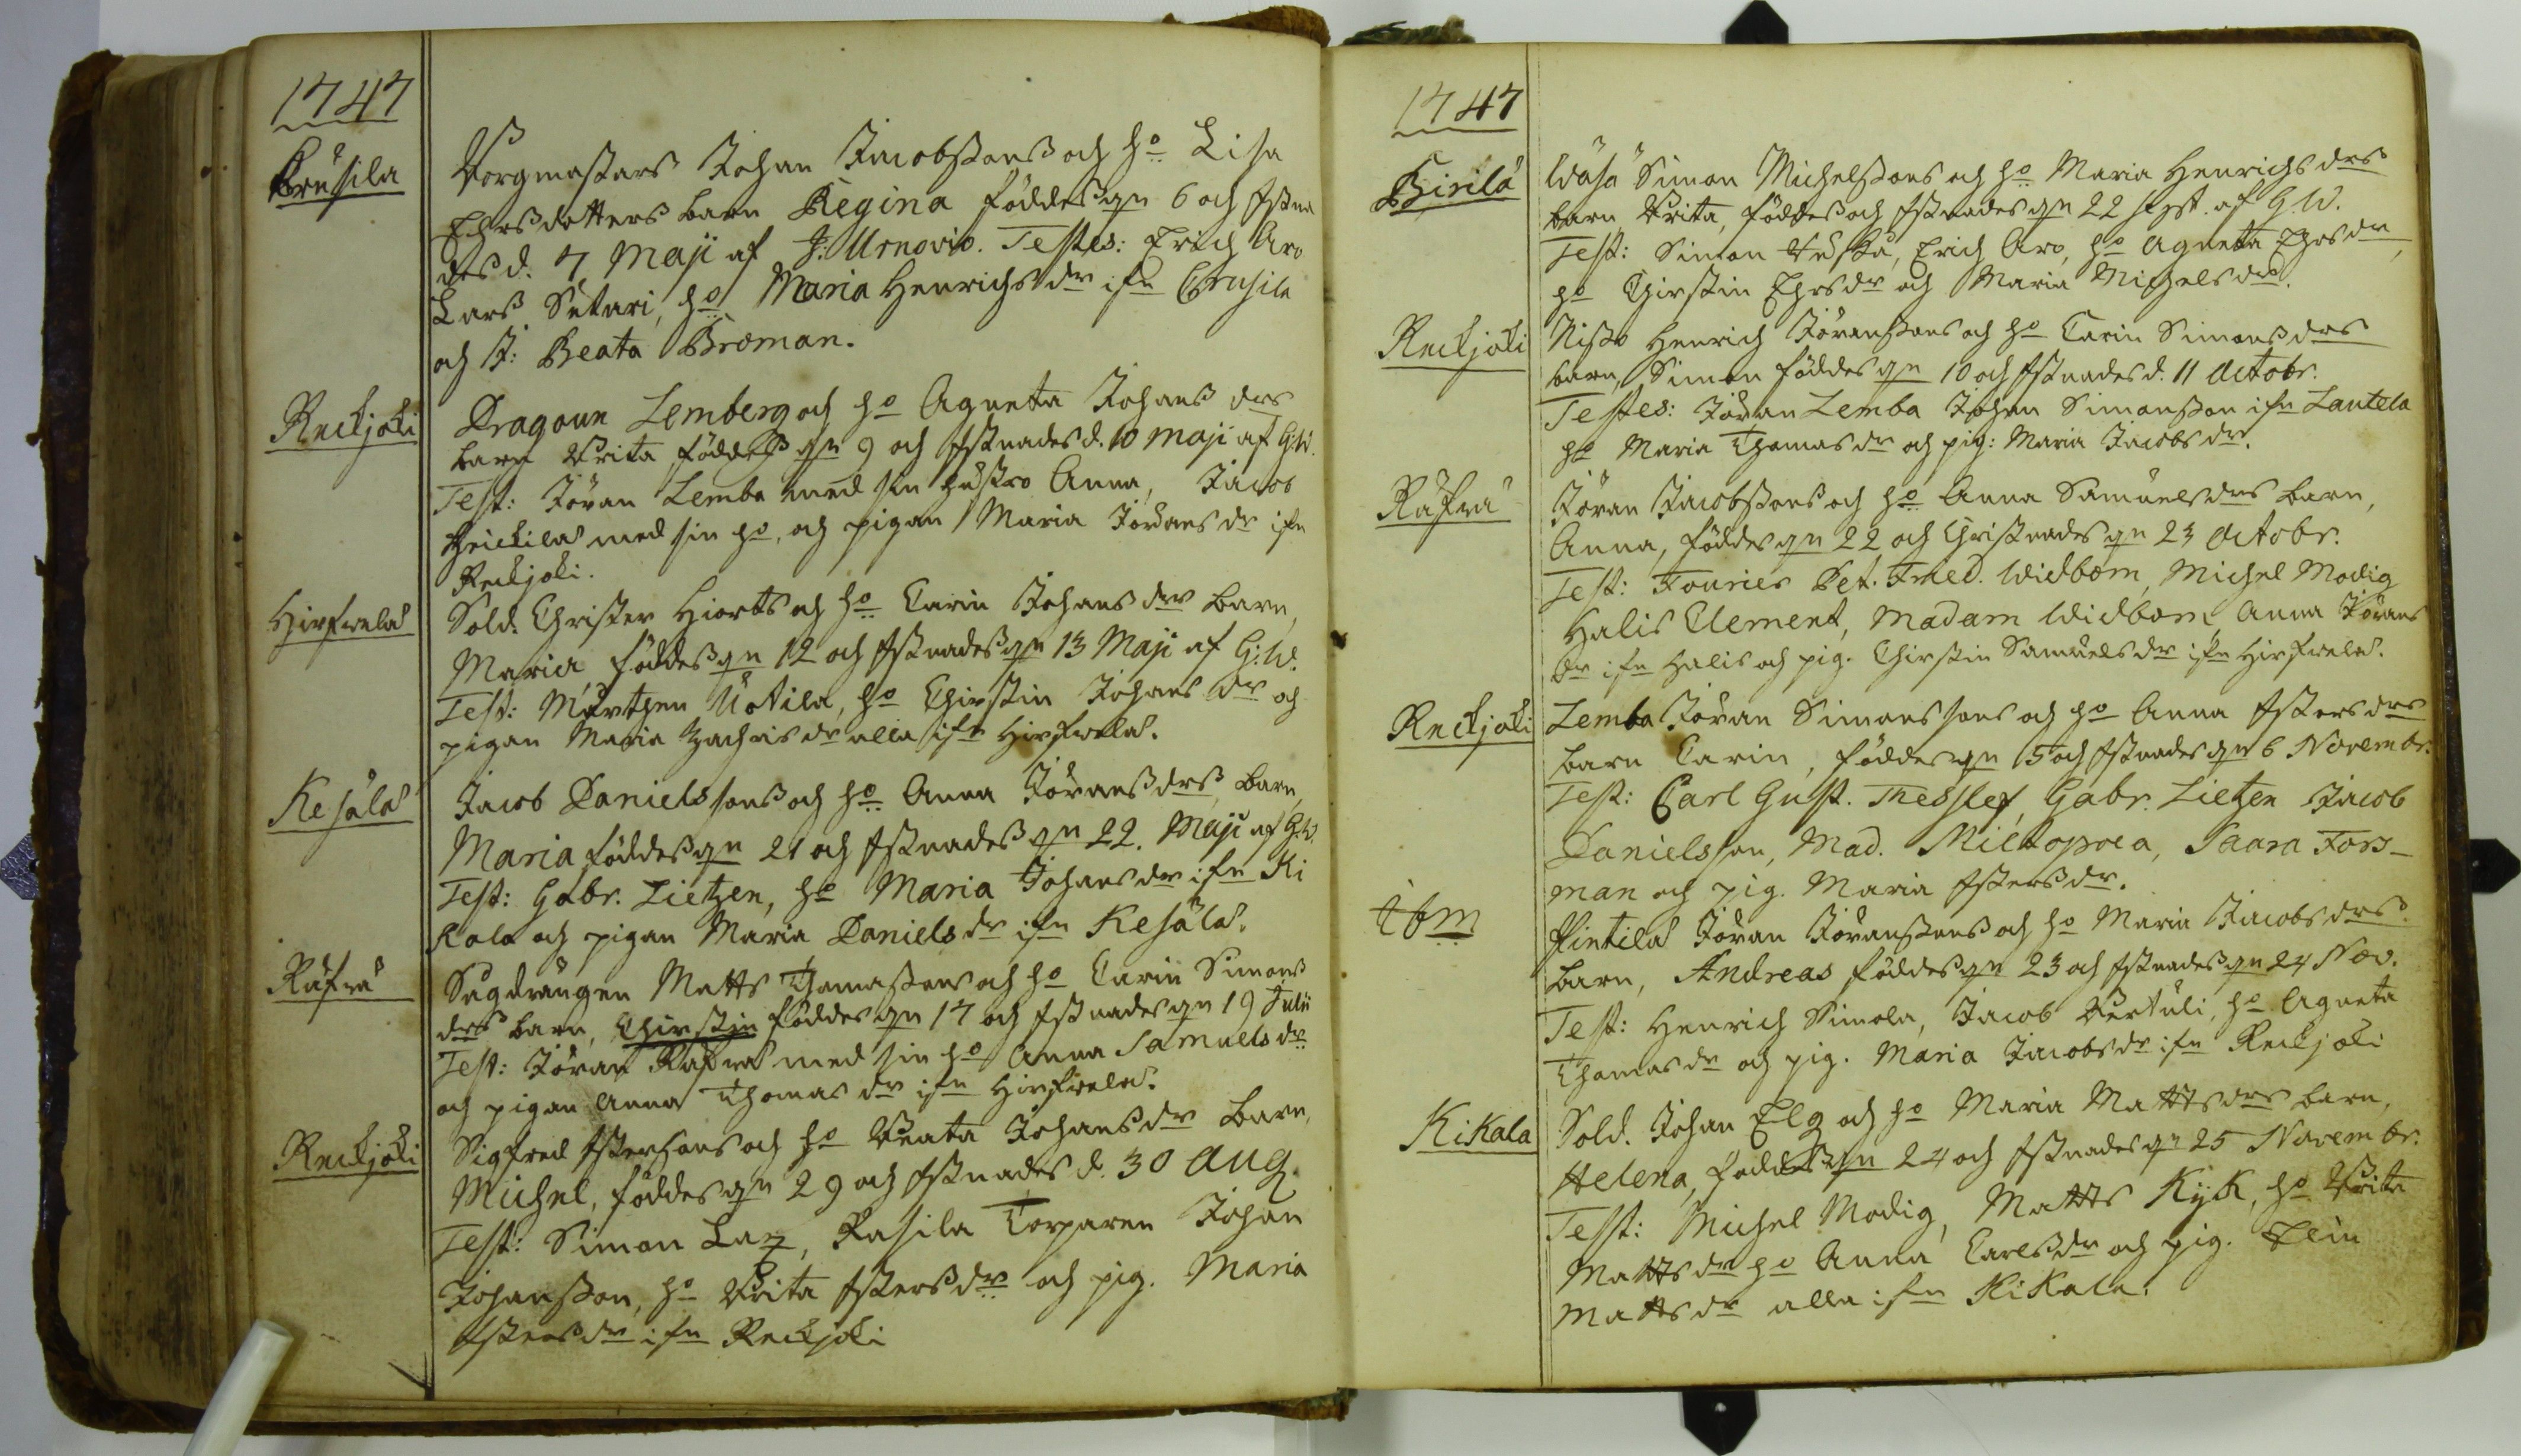 1747
Crusila
Borgmästars Johan Jacobssons och ho Lisa
Ersdotters barn Regina föddes dn 6 och Xstna
des d. 7 Maji af J. Urnovio. Testes: Erich Aro
Lars Sutari, ho Maria Henrichsdr ifn Crusila
och J: Beata Broman.
Reckjoki
Dragoun Lemberg och ho Agneta Johans drs
barn Brita, föddes dn 9 och Xstnades d. 10 Maji af G.W.
Test: Jöran Lemba med sin hustro Anna, Jacob
Heickilä med sin ho, och pigan Maria Jörans dr ifn
Reckjoki.
Hirfwelä
Sold. Christer Hiorts och ho Carin Johans drs barn,
Maria, föddes dn 12 och Xstnades dn 13 Maji af G:W.
Test: Mårthen Uotila, ho Chirstin Johans dr och
pigan Maria Zachris dr alla ifn Hirfwelä.
Kesälä
Jacob Danielssons och ho Anna Jöransdrs barn,
Maria föddes dn 21 och Xstnades dn 22. Maji af G.W.
Test: Gabr. Lietzen, ho Maria Johansdr ifn Ki
Kala och pigan Maria Daniels dr ifn Kesälä.
Räfvä
Sägdrängen Matts Thomassons och ho Carin Simons
drs barn, Chirstin föddes dn 17 och Xstnades dn 19 Julii
Test: Jöran Räfvä med sin ho Anna Samuelsdr
och pigan Anna Thomas dr ifn Hirfwelä.
Reckjoki
Sigfred Xstersons och ho Beata Johansdrs barn,
Michel, föddes dn 29 och Xstnades d. 30 Aug.
Test: Simon Lax, Rasila Torparen Johan
Johansson, ho Brita Xstersdr och pig. Maria
Xstersdr ifn Reckjoki
1747
Birilä
Wäsä Simon Michelssons och ho Maria Henrichs drs
barn Brita, föddes och Xstnades dn 22 sept. af G.W.
Test: Simon Huska, Erich Aro, ho Agneta Ersdr,
ho Chirstin Ersdr och Maria Michelsdr.
Reckjoki
Nisso Henrich Jöranssons och ho Carin Simonsdrs
barn, Simon föddes dn 10 och Xstnades d. 11 Octobr.
Testes: Jöran Lemba Johan Simonsson ifn Lautela
ho Maria Thomasdr och pig: Maria Jacobsdr.
Räfvä
Jöran Jacobssons och ho Anna Samuelsdrs barn,
Anna, föddes dn 22 och Christnades dn 23 Octobr.
Test: Fourier Pet. Fred. Widbom, Michel Modig
Halis Clement, Madam Widbom Anna Jörans
dr ifn Halis och pig. Chirstin Samuelsdr ifn Hirfwelä.
Reckjoki
Lemba Jöran Simonssons och ho Anna Xstersdrs
barn Carin, föddes dn 5 och Xstnades dn 6 Novembr.
Test: Carl Gust. Thesslef, Gabr. Lietzen Jacob
Danielsson, Mad. Miltopoea, Saara Fors-
man och pig. Maria Xstersdr.
ibm
Pintilä Jöran Jöranssons och ho Maria Jacobsdrs
barn, Andreas föddes dn 23 och Xstnades dn 24 Nov.
Test: Henrich Simola, Jacob Pertuli, ho Agneta
Thomasdr och pig. Maria Jacobsdr ifn Reckjoki
KiKala
Sold. Johan Elg och ho Maria Mattsdrs barn,
Helena, föddes dn 24 och Xstnades dn 25 Novembr.
Test: Michel Modig, Matts Kijk, ho Brita
Mattsdr ho Anna Carlsdr och pig. Elin
Mattsdr alla ifn KiKala.